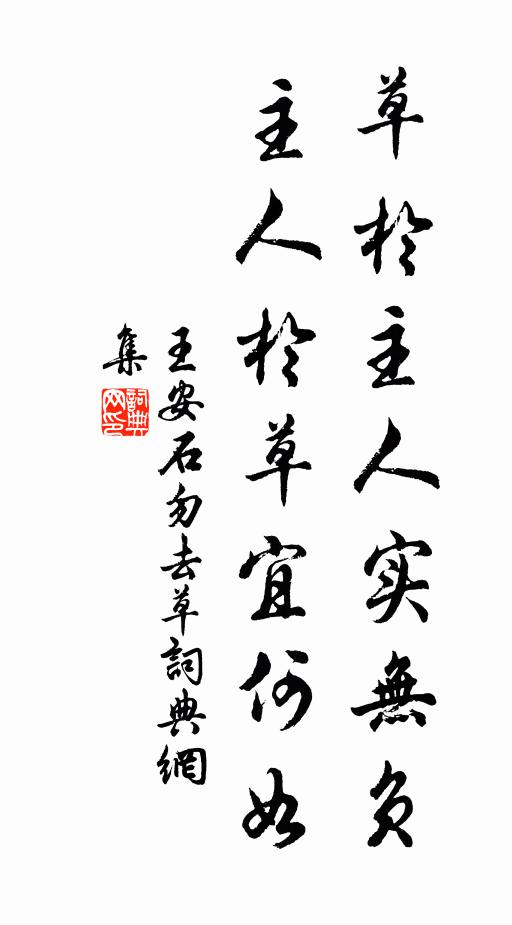 草於主人实無負
主人於草宜何如
王安石勿去草詞典網
集
詞典
网印